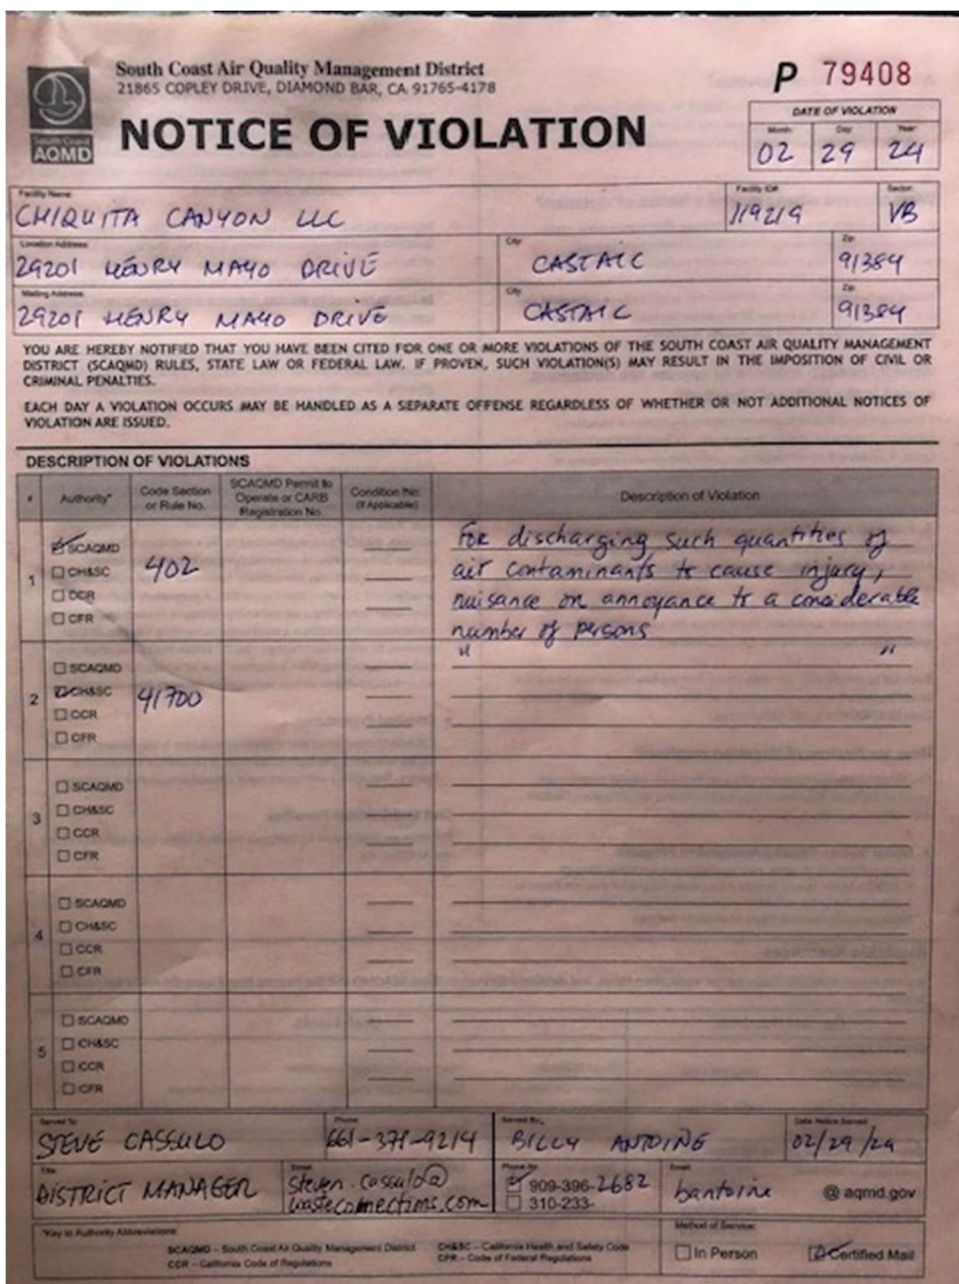 South Coast
AQMD
South Coast Air Quality Management District
21865 COPLEY DRIVE, DIAMOND BAR, CA 91765-4178
NOTICE OF VIOLATION
P 79408
DATE OF VIOLATION
Month Day Year
02 29 24
Facility Name Facility ID# Sector
CHIQUITA CANYON LLC 119219 VB
Location Address City Zip
29201 HENRY MAYO DRIVE CASTAIC 91384
Mailing Address City Zip
29201 HENRY MAYO DRIVE CASTAIC 91384
YOU ARE HEREBY NOTIFIED THAT YOU HAVE BEEN CITED FOR ONE OR MORE VIOLATIONS OF THE SOUTH COAST AIR QUALITY MANAGEMENT
DISTRICT (SCAQMD) RULES, STATE LAW OR FEDERAL LAW. IF PROVEN, SUCH VIOLATION(S) MAY RESULT IN THE IMPOSITION OF CIVIL OR
CRIMINAL PENALTIES.
EACH DAY A VIOLATION OCCURS MAY BE HANDLED AS A SEPARATE OFFENSE REGARDLESS OF WHETHER OR NOT ADDITIONAL NOTICES OF
VIOLATION ARE ISSUED.
DESCRIPTION OF VIOLATIONS
# Authority* Code Section or Rule No. SCAQMD Permit to Operate or CARB Registration No. Condition No. (If Applicable) Description of Violation
1
SCAQMD
CH&SC
CCR
CFR
402
For discharging such quantities of
air contaminants to cause injury,
nuisance or annoyance to a considerable
number of persons
2
SCAQMD
CH&SC
CCR
CFR
41700
" "
3
SCAQMD
CH&SC
CCR
CFR
4
SCAQMD
CH&SC
CCR
CFR
5
SCAQMD
CH&SC
CCR
CFR
Served To Phone Served By Date Notice Served
STEVE CASSULO 661-371-9214 BILLY ANTOINE 02/29/24
Title Email Phone No. Email
DISTRICT MANAGER steven.cassulo@ 909-396-2682 bantoine @ aqmd.gov
wasteconnections.com 310-233-
*Key to Authority Abbreviations:
SCAQMD – South Coast Air Quality Management District CH&SC – California Health and Safety Code
CCR – California Code of Regulations CFR – Code of Federal Regulations
Method of Service:
In Person Certified Mail